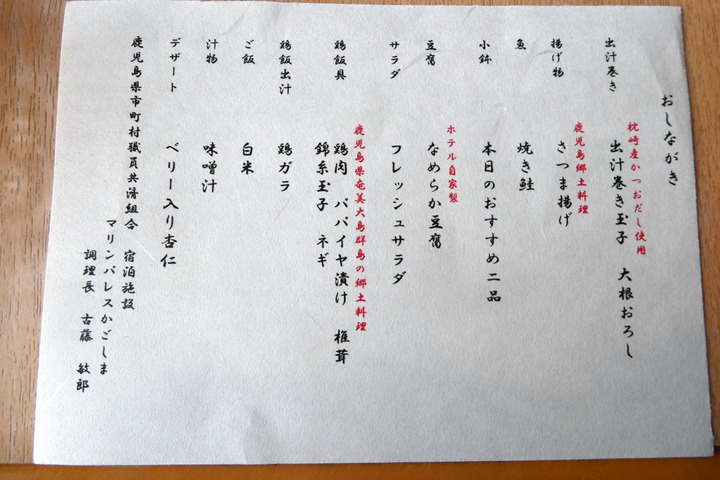 おしながき
枕崎産かつおだし使用
出汁巻き 出汁巻き玉子 大根おろし
鹿児島郷土料理
揚げ物 さつま揚げ
魚 焼き鮭
小鉢 本日のおすすめ二品
ホテル自家製
豆腐 なめらか豆腐
サラダ フレッシュサラダ
鹿児島県奄美大島群島の郷土料理
鶏飯具 鶏肉 パパイヤ漬け 椎茸
錦糸玉子 ネギ
鶏飯出汁 鶏ガラ
ご飯 白米
汁物 味噌汁
デザート ベリー入り杏仁
鹿児島県市町村職員共済組合 宿泊施設
マリンパレスかごしま
調理長 古藤 敏郎